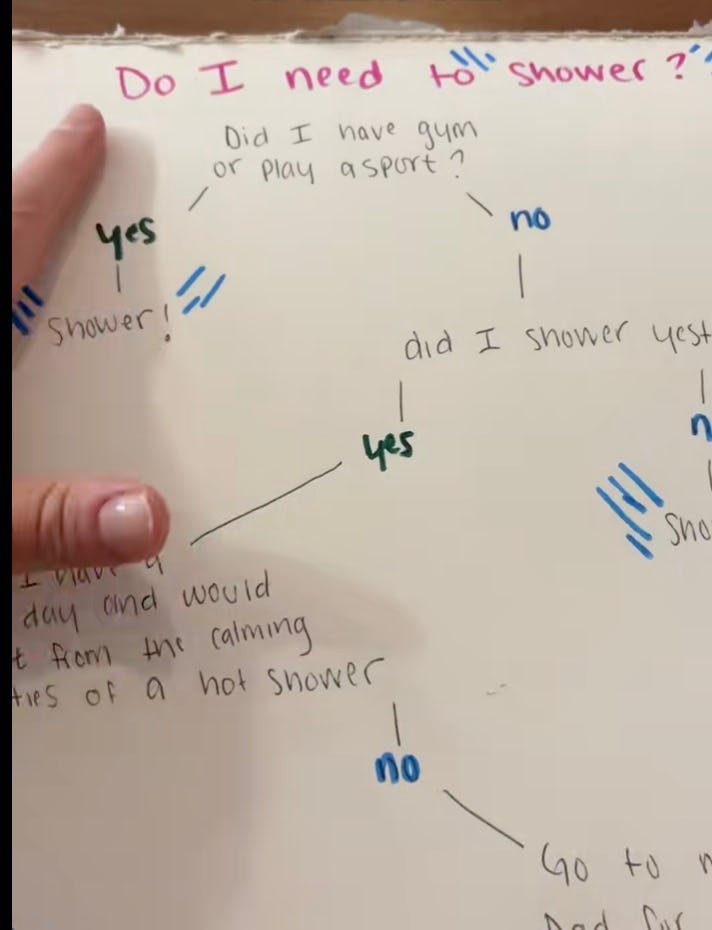 Do I need to shower?
Did I have gym
or play a sport?
yes
no
Shower!
did I shower yest
yes
n
Sho
I have a
day and would
t from the calming
ties of a hot shower
no
Go to
Dad for